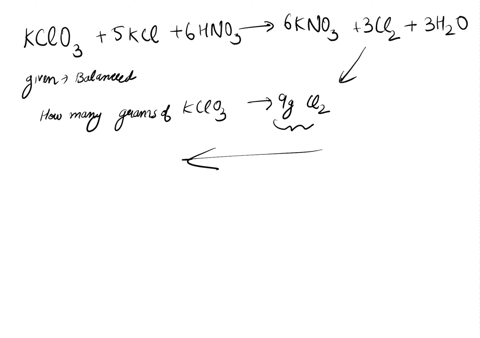 KClO₃ + 5KCl + 6HNO₃ → 6KNO₃ + 3Cl₂ + 3H₂O
given → Balanced
How many grams of KClO₃ → 9g Cl₂